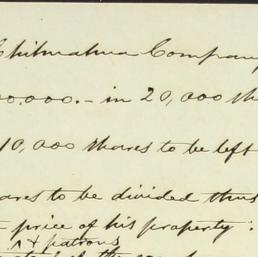 Chihuahua Company
00.000. - in 20,000 sh
10,000 shares to be left
ares to be divided thus
price of his property :
^ & patrons